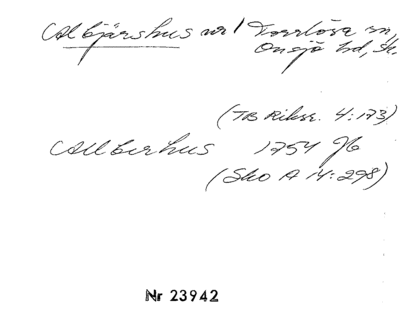 Albjärshus nr 1 Torrlösa sn,
Onsjö hd, Sk.
(TB Riksr. 4:173)
Allberhus 1754 Jb
(Sko A 14:298)
Nr 23942